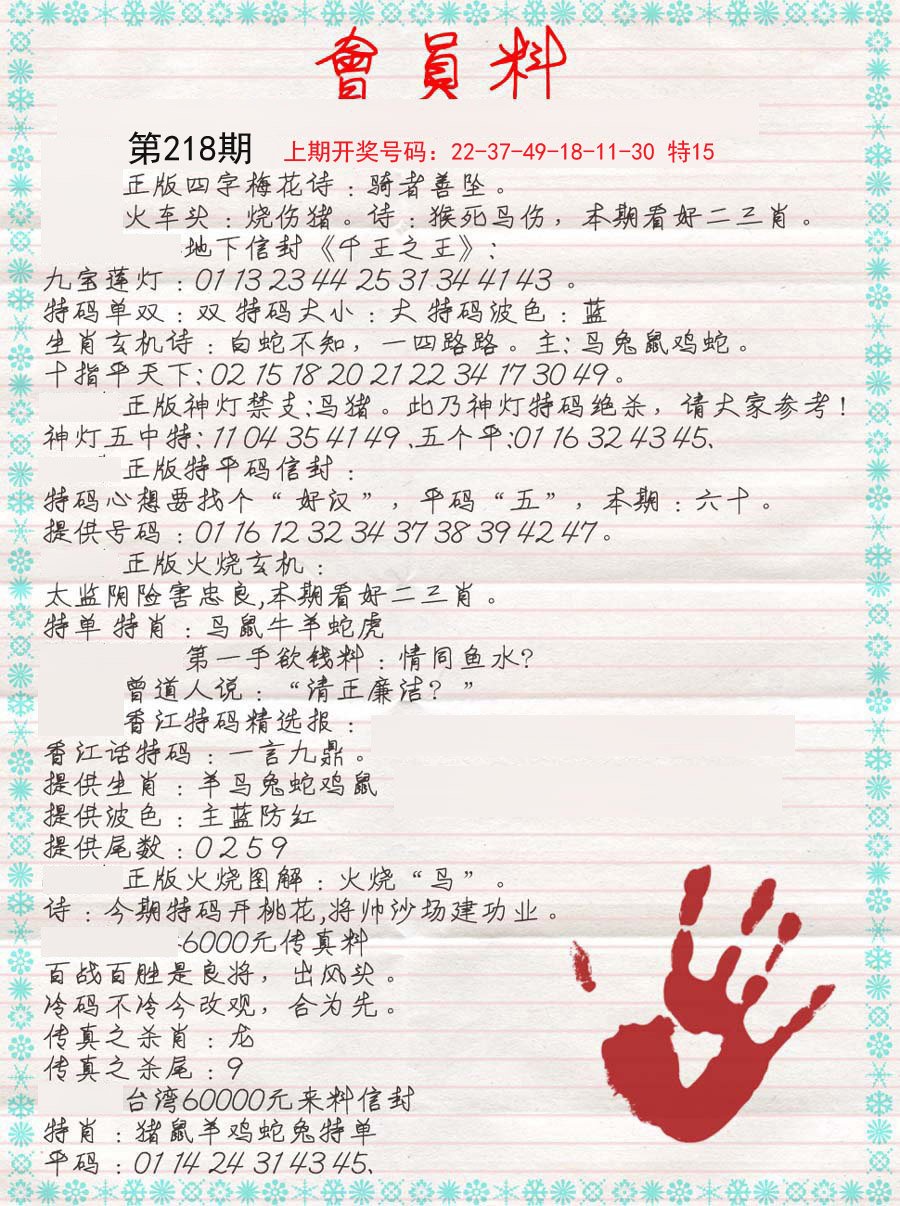 會員料
第218期 上期开奖号码：22-37-49-18-11-30 特15
正版四字梅花诗：骑者善坠。
火车头：烧伤猪。诗：猴死鸟伤，本期看好二三肖。
地下信封《千王之王》：
九宝莲灯：01 13 23 44 25 31 34 41 43 。
特码单双：双 特码大小：大 特码波色：蓝
生肖玄机诗：白蛇不知，一四路路。主：鸟兔鼠鸡蛇。
十指平天下：02 15 18 20 21 22 34 17 30 49。
正版神灯禁支：鸟猪。此乃神灯特码绝杀，请大家参考！
神灯五中特：11 04 35 41 49 、五个平：01 16 32 43 45、
正版特平码信封：
特码心想要找个“好汉”，平码“五”，本期：六十。
提供号码：01 16 12 32 34 37 38 39 42 47。
正版火烧玄机：
太监阴险害忠良,本期看好二三肖。
特单 特肖：鸟鼠牛羊蛇虎
第一手欲钱料：情同鱼水?
曾道人说：“请正廉洁？”
香江特码精选报：
香江话特码：一言九鼎。
提供生肖：羊鸟兔蛇鸡鼠
提供波色：主蓝防红
提供尾数：0 2 5 9
正版火烧图解：火烧“鸟”。
诗：今期特码开桃花,将帅沙场建功业。
6000元传真料
百战百胜是良将，出风头。
冷码不冷今改观，合为先。
传真之杀肖：龙
传真之杀尾：9
台湾60000元来料信封
特肖：猪鼠羊鸡蛇兔特单
平码：01 14 24 31 43 45、